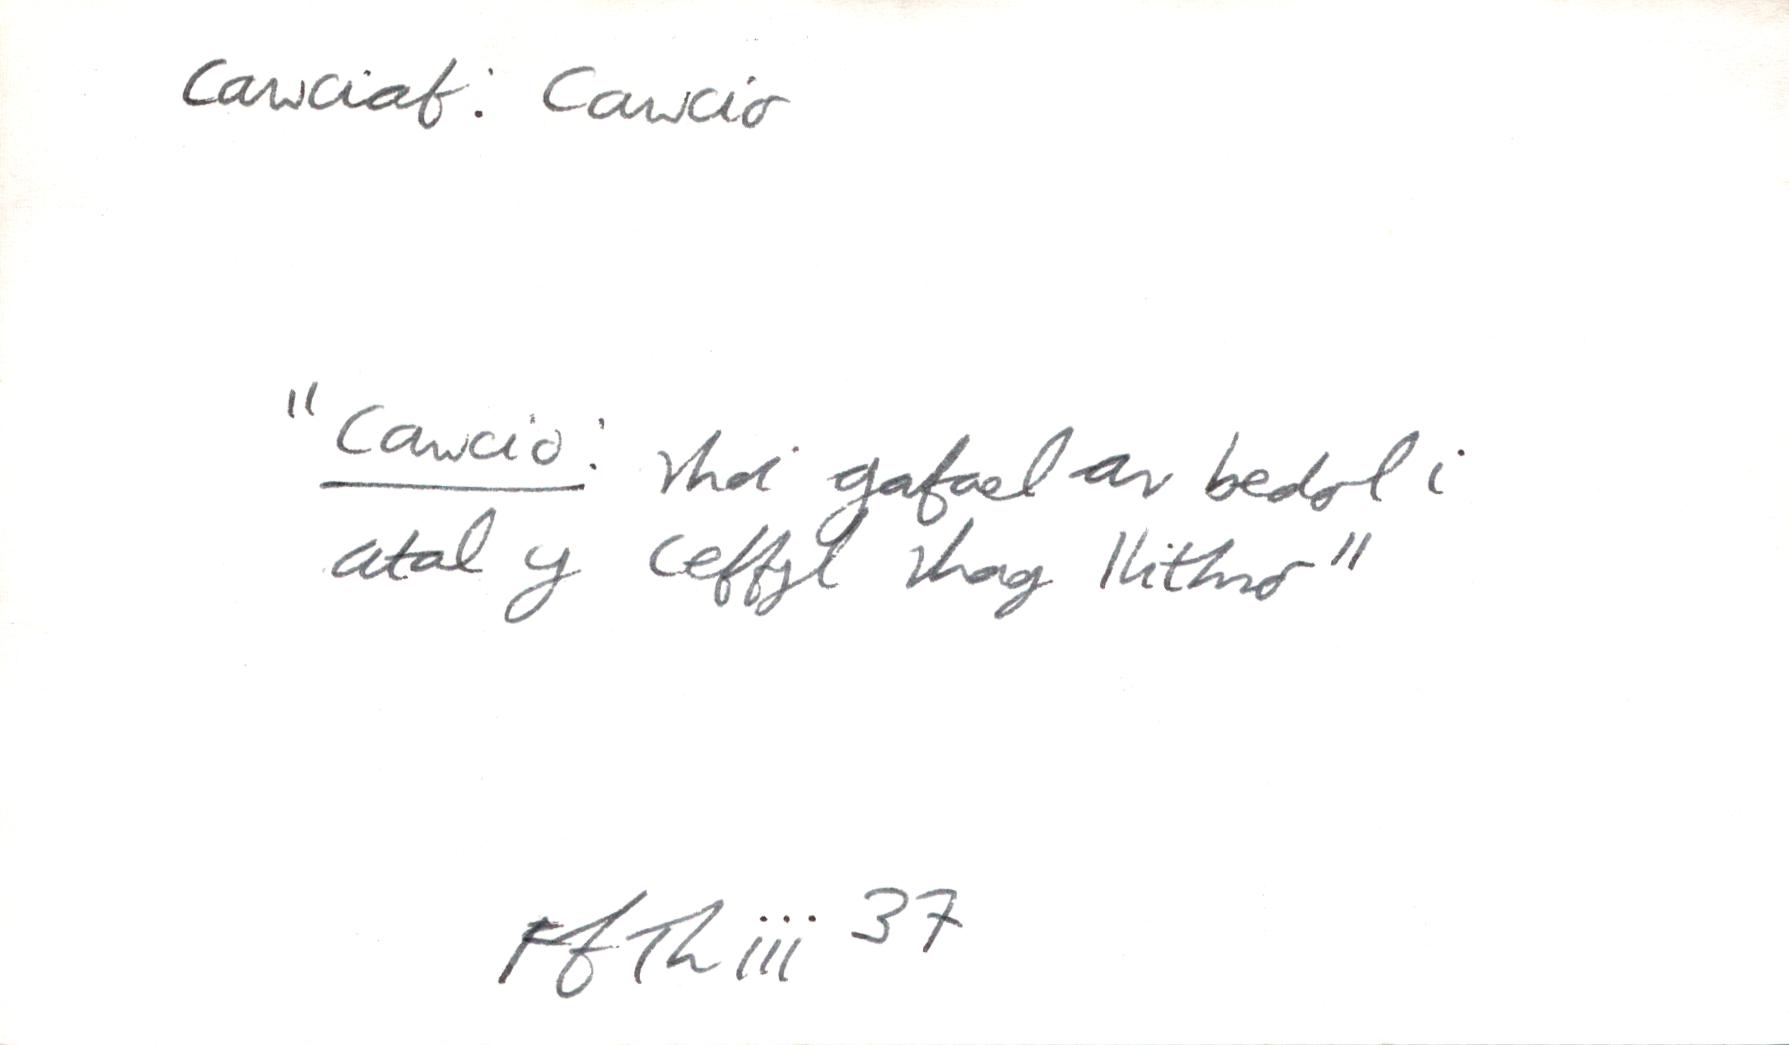 Cawciaf: Cawcio
"Cawcio: rhoi gafael ar bedol i
atal y ceffyl rhag llithro"
FfTh iii 37